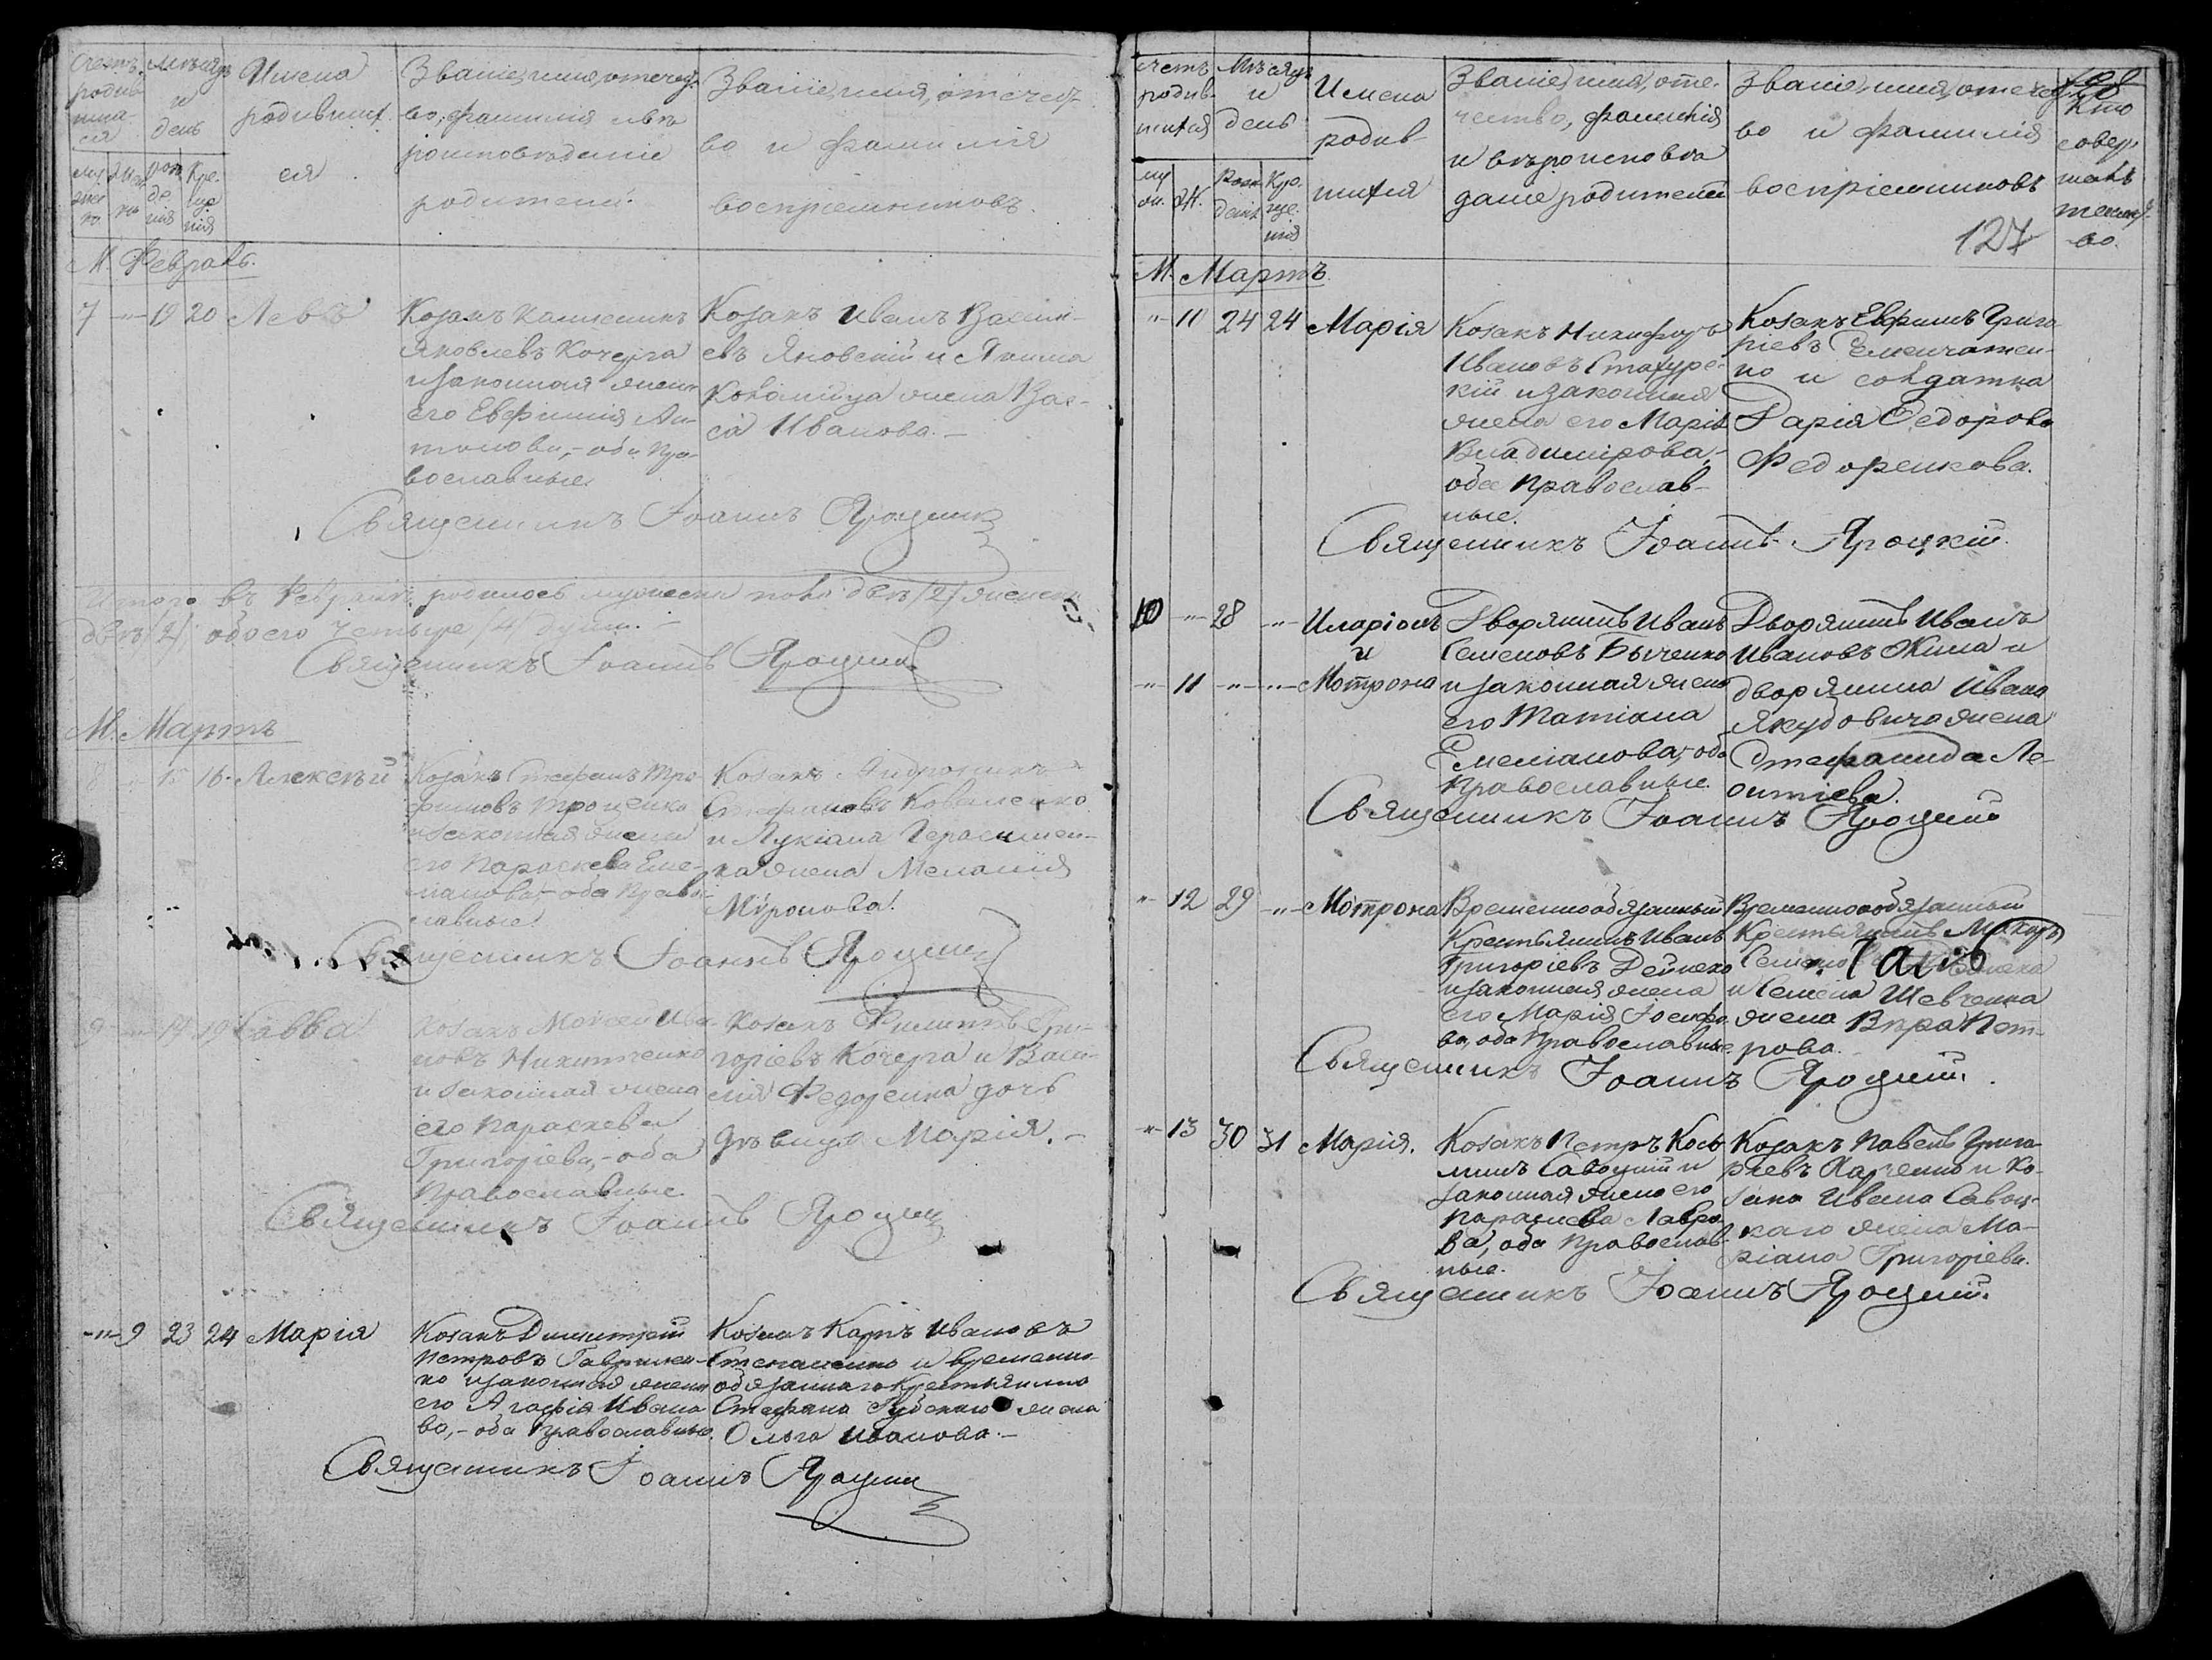 Счетъ
родив
шиха-
ся
Мѣсяцъ
и
день
Имена
родивших
ся
Званіе, имя, отечест-
во, фамилія и вѣ
роисповѣданіе
родителей.
Званіе, имя, отечест-
во и фамилія
воспріемниковъ.
муж
жен
рож
де
нія
Кре-
ще
нія
М. Февраль.
7 -"- 19 20 Левъ
Козакъ Каленикъ
Яковлевъ Кочерга
и законная жена
его Евфимія Ан-
тонова,- оба Пра-
вославные.
Козакъ Иванъ Васили-
евъ Яновскій и Якима
Коваленка жена Вас-
са Иванова.-
Священникъ Іоаннъ Яроцкій
Итого въ Февралѣ родилось мужеска пола двѣ /2/ женска
двѣ /2/ обоего четыре /4/ души.-
Священникъ Іоаннъ Яроцкій
М. Мартъ
8 " 15 16. Алексѣй
Козакъ Стефанъ Тро-
фимовъ Троценко
и законная жена
его Параскева Еме-
ліанова,- оба Право-
славные.
Козакъ Андроникъ
Стефановъ Коваленко
и Лукіана Герасимен-
ка жена Меланія
Муронова.
Священникъ Іоаннъ Яроцкій
9 -"- 17 19 Савва
Козакъ Моисей Ива-
новъ Никитченко
и законная жена
его Параскева
Григоріева,- оба
Православные.
Козакъ Филиппъ Гри-
горіевъ Кочерга и Васи-
лія Федоренка дочь
дѣвица Марія.-
Священникъ Іоаннъ Яроцкій
-"- 9 23 24 Марія
Козакъ Димитрій
Петровъ Гаврилен-
ко и законная жена
его Агафія Ивано
ва,- оба Православные.
Козакъ Карпъ Ивановъ
Степаненко и временно-
обязаннаго Крестьянина
Стефана жена
Ольга Иванова.-
Священникъ Іоаннъ Яроцкій
Счетъ
родив-
шихся
Мѣсяцъ
и
день
Имена
родив-
шихся
Званіе, имя, оте-
чество, фамилія
и вѣроисповѣ
даніе родителей
Званіе, имя, отечест-
во и фамилія
воспріемниковъ
127
Кто
совер-
шалъ
таинст-
во.
му
ж. Ж.
Рож
денія
Кре-
ще-
нія
М. Мартъ
-"- 11 24 24 Марія
Козакъ Никифоръ
Ивановъ
кій и законная
жена его Марія
Владимірова,-
оба Православ-
ные.
Козакъ Ефримъ Григо
ріевъ
но и солдатка
Дарія Федорова
Федоренкова.
Священникъ Іоаннъ Яроцкій.
10 -"- 28 -"- Иларіонъ
и
-"- 11 -"- -"- Мотрона
Дворянинъ Иванъ
Семеновъ Быченко
и законная жена
его Татіана
Емеліанова,- оба
Православные.
Дворянинъ Иванъ
Ивановъ Жила и
дворянина Ивана
Якубовича жена
Стефанида Ле-
онтіева.
Священникъ Іоаннъ Яроцкій
-"- 12 29 -"- Мотрона
Временнообязанный
Крестьянинъ Иванъ
Григоріевъ Дейнека
и законная жена
его Марія Іосифо
ва, оба Православные.
Временнообязанный
Крестьянинъ
и Семена Шевченка
жена Вѣра Пет-
рова.
Священникъ Іоаннъ Яроцкій.
-"- 13 30 31 Марія.
Козакъ Петръ Козь
минъ Савоцкій и
законная жена его
Параскева Лавро
ва, оба Православ-
ные.
Козакъ Павелъ Григо
ріевъ Харченко и Ко-
зака Ивана Савоц-
каго жена Ма-
ріана Григоріева.
Священникъ Іоаннъ Яроцкій.